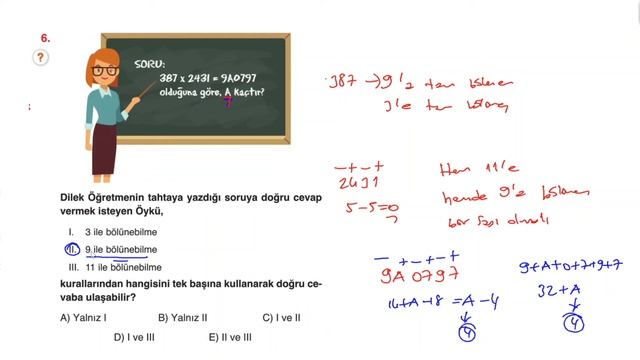 6.
?
SORU:
387 x 2431 = 9A0797
olduğuna göre, A kaçtır?
Dilek Öğretmenin tahtaya yazdığı soruya doğru cevap
vermek isteyen Öykü,
I. 3 ile bölünebilme
II. 9 ile bölünebilme
III. 11 ile bölünebilme
kurallarından hangisini tek başına kullanarak doğru ce-
vaba ulaşabilir?
A) Yalnız I B) Yalnız II C) I ve II
D) I ve III E) II ve III
387 → 9'a tam bölünen
3'e tam
- + - +
2431
5-5=0
Hem 11'e
hemde 9'a bölünen
bir sayı olmalı
- + - + - +
9A0797
= A - 4
4
9+A+0+7+9+7
32+A
4